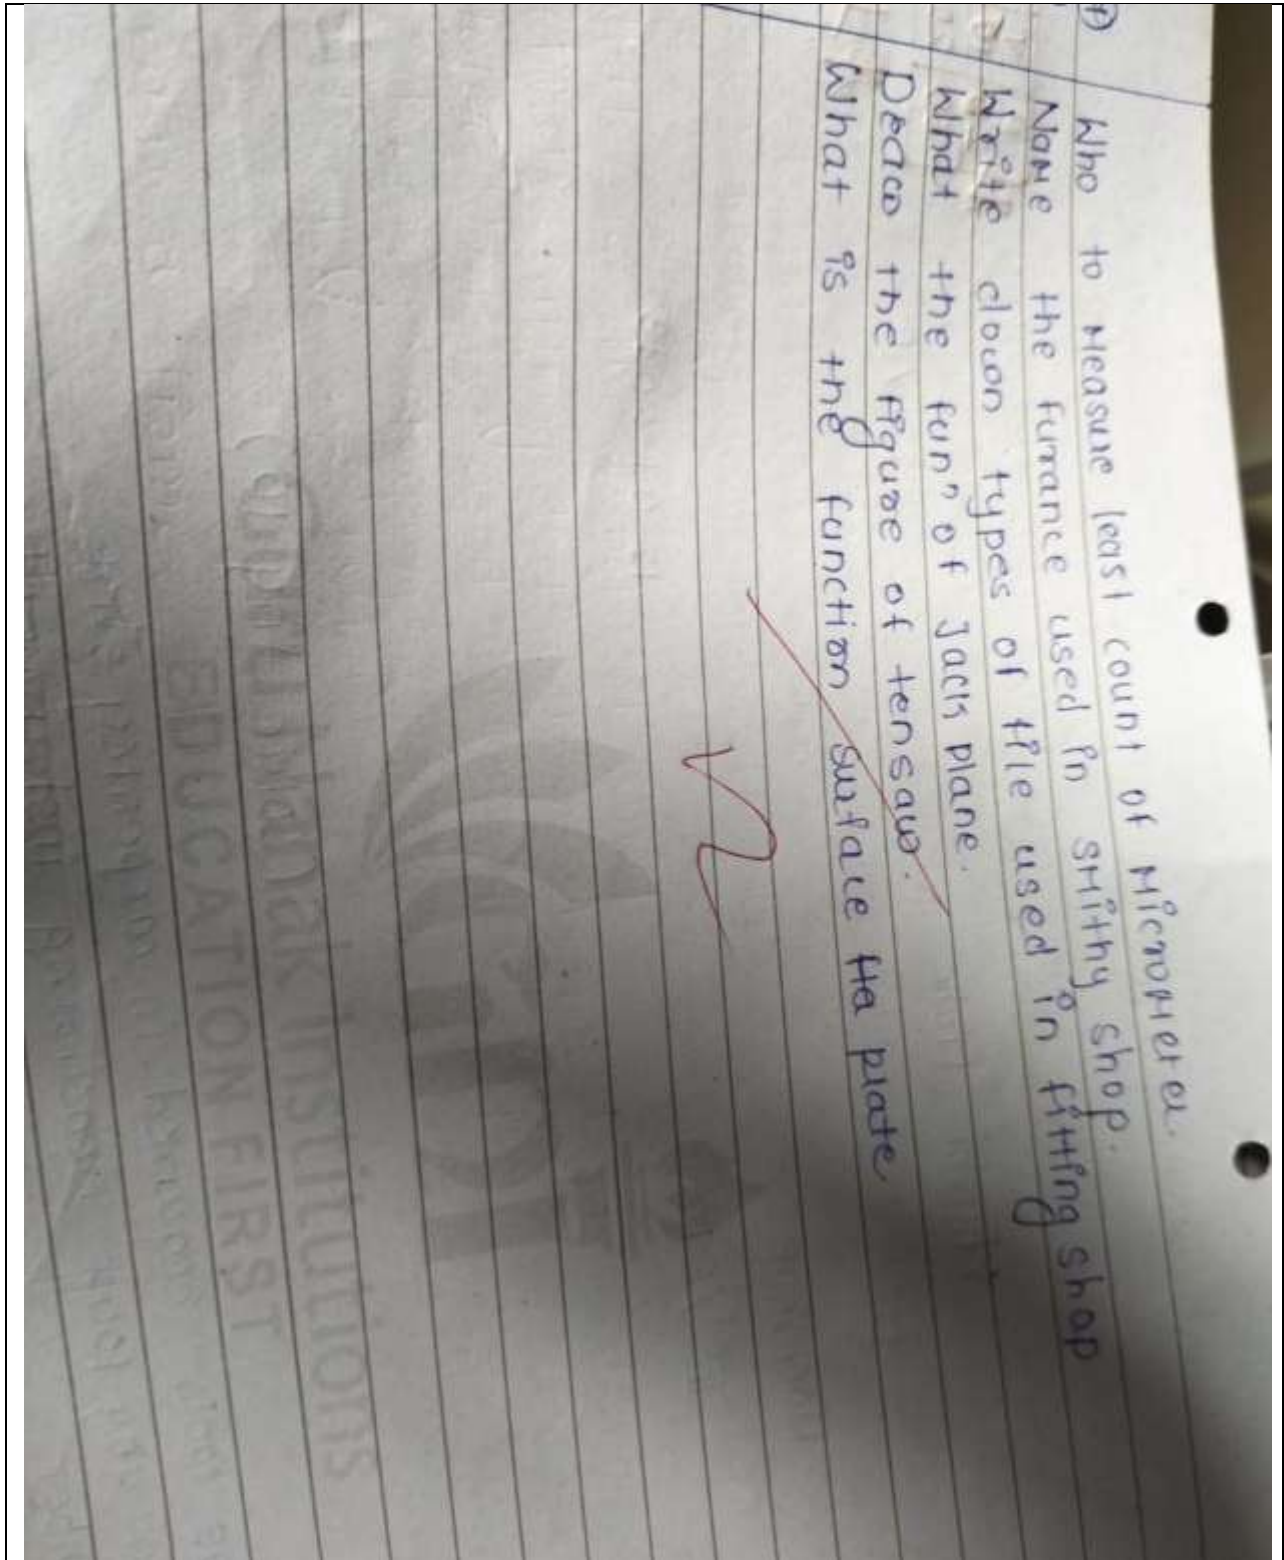 Who to Measure least count of Micrometer.
Name the furrance used in smithy shop.
Write down types of file used in fitting shop
What the funⁿ of Jack plane.
Draw the figure of tensaw.
What is the function surface Ha plate
Institutions
EDUCATION FIRST